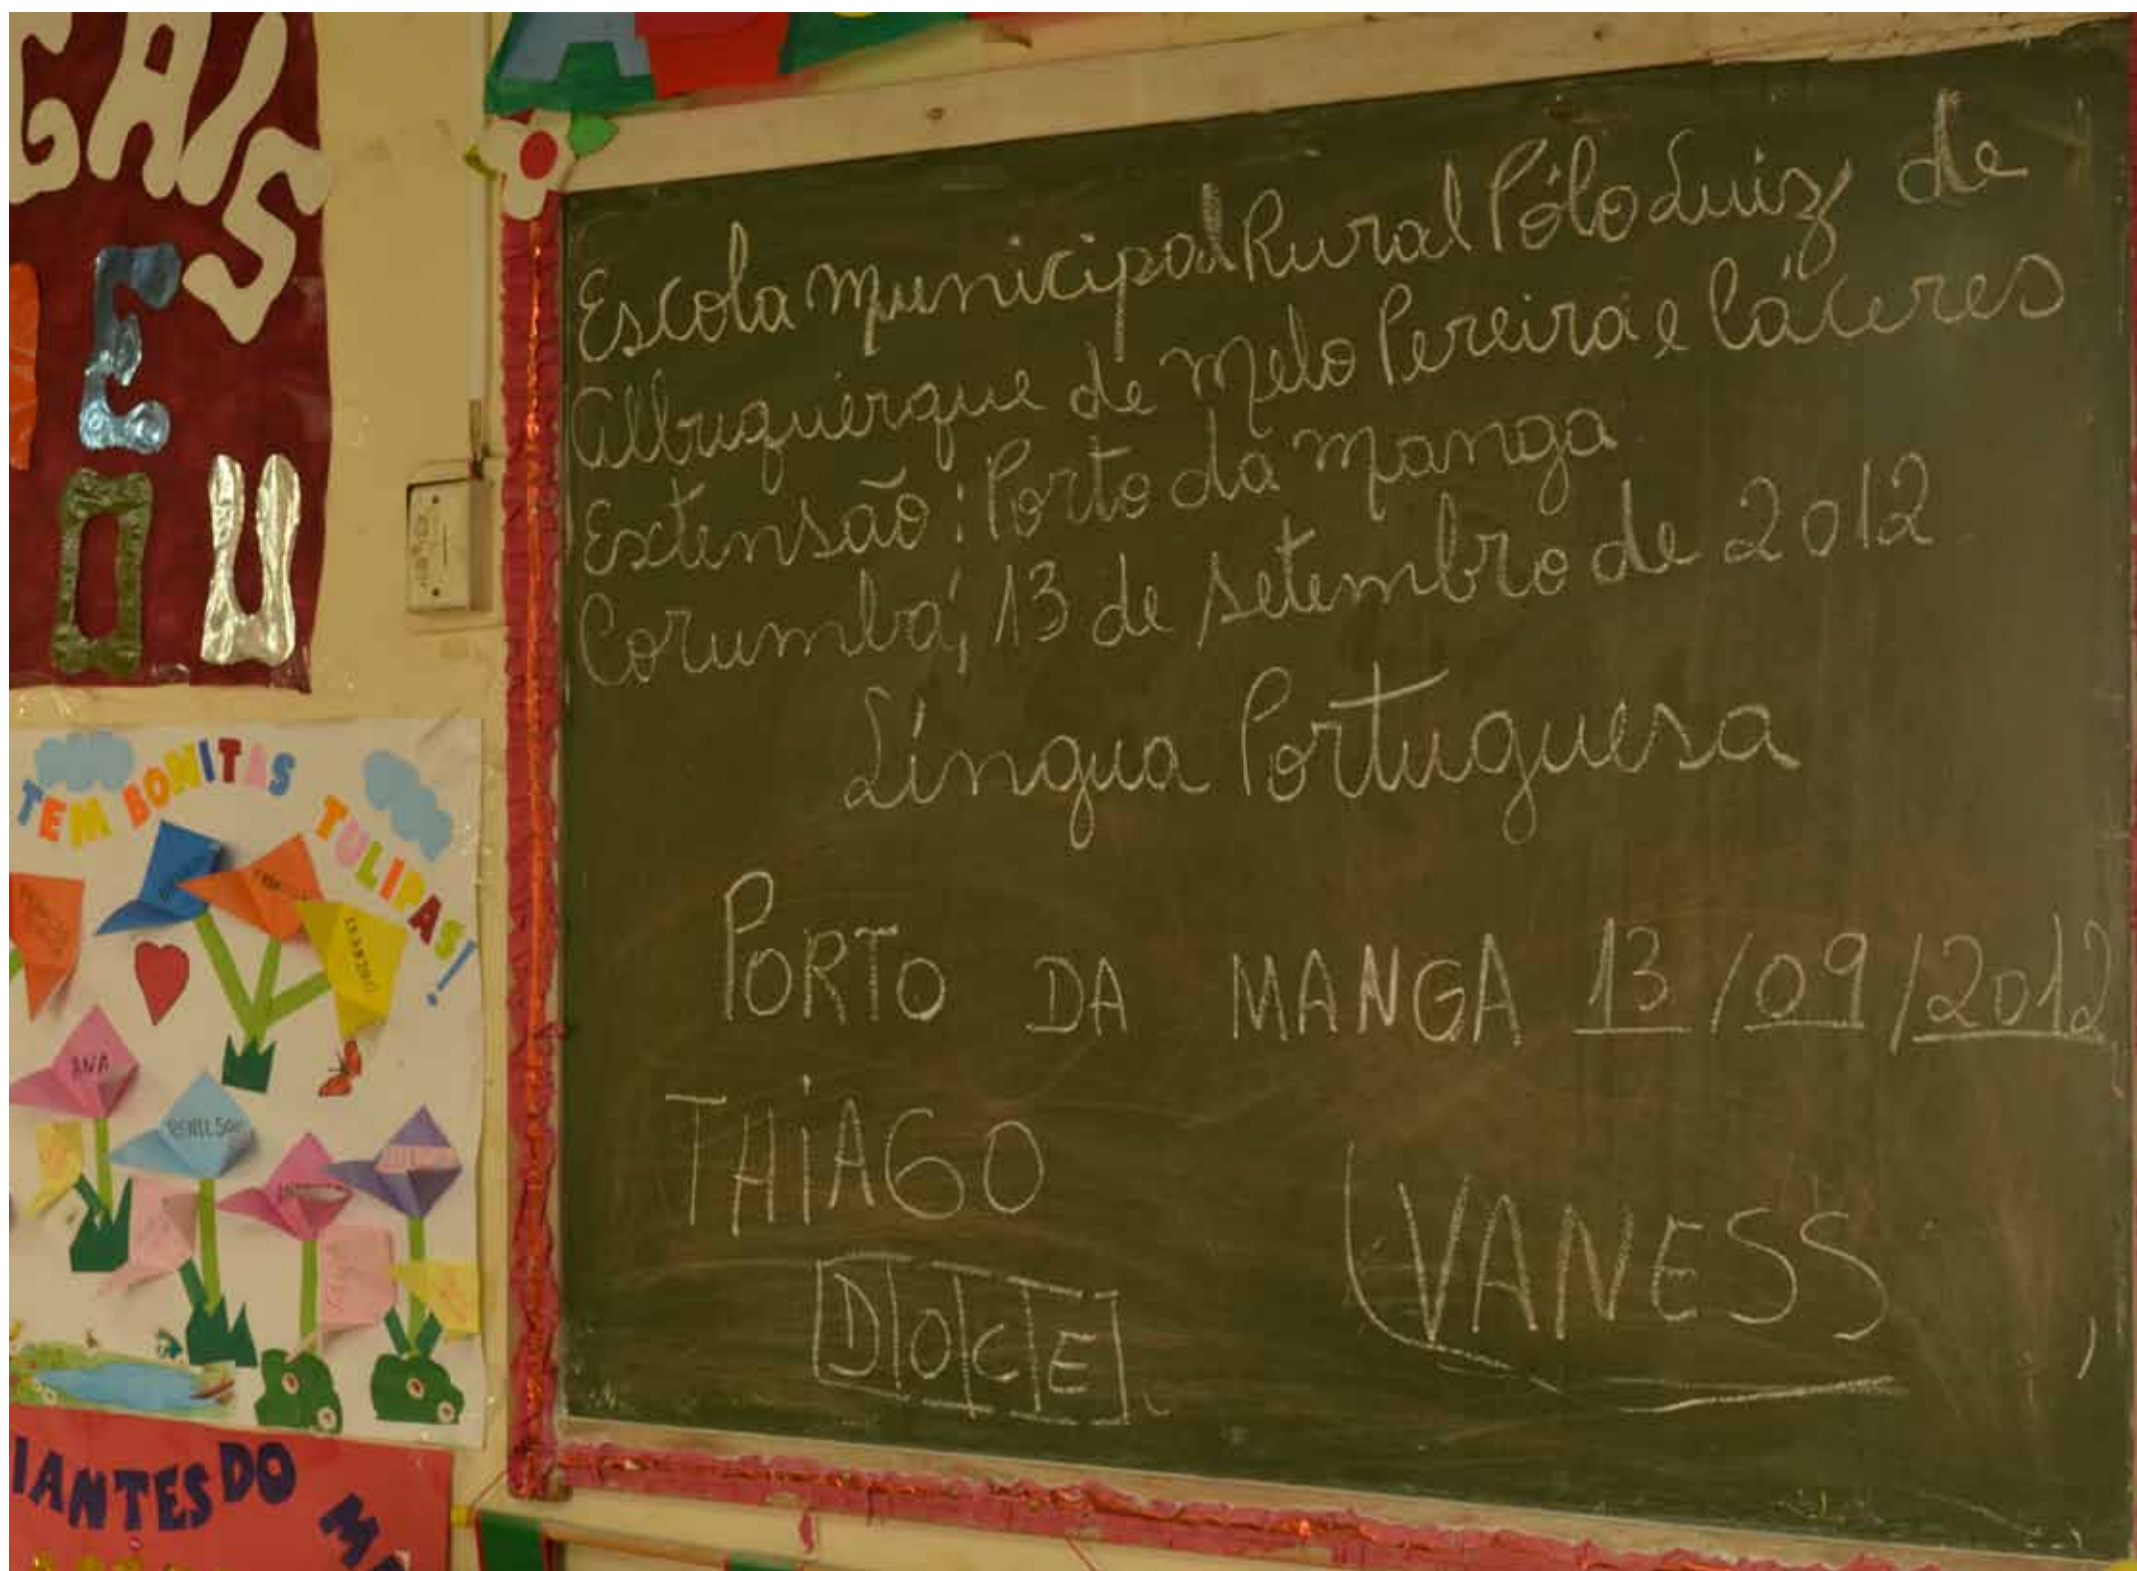 GAIS
E
O U
TEM BONITAS TULIPAS!
ANA
DENILSON
IANTES DO
Escola municipal Rural Pólo Luiz de
Albuquerque de melo Pereira e Cáceres
Extensão: Porto da manga
Corumbá, 13 de setembro de 2012
Língua Portuguesa
PORTO DA MANGA 13/09/2012
THiAGO
VANESS
DOCE